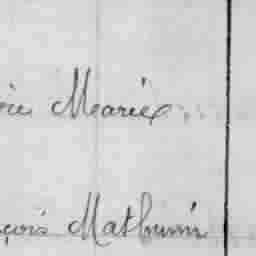 oie Marie
çois Mathurin